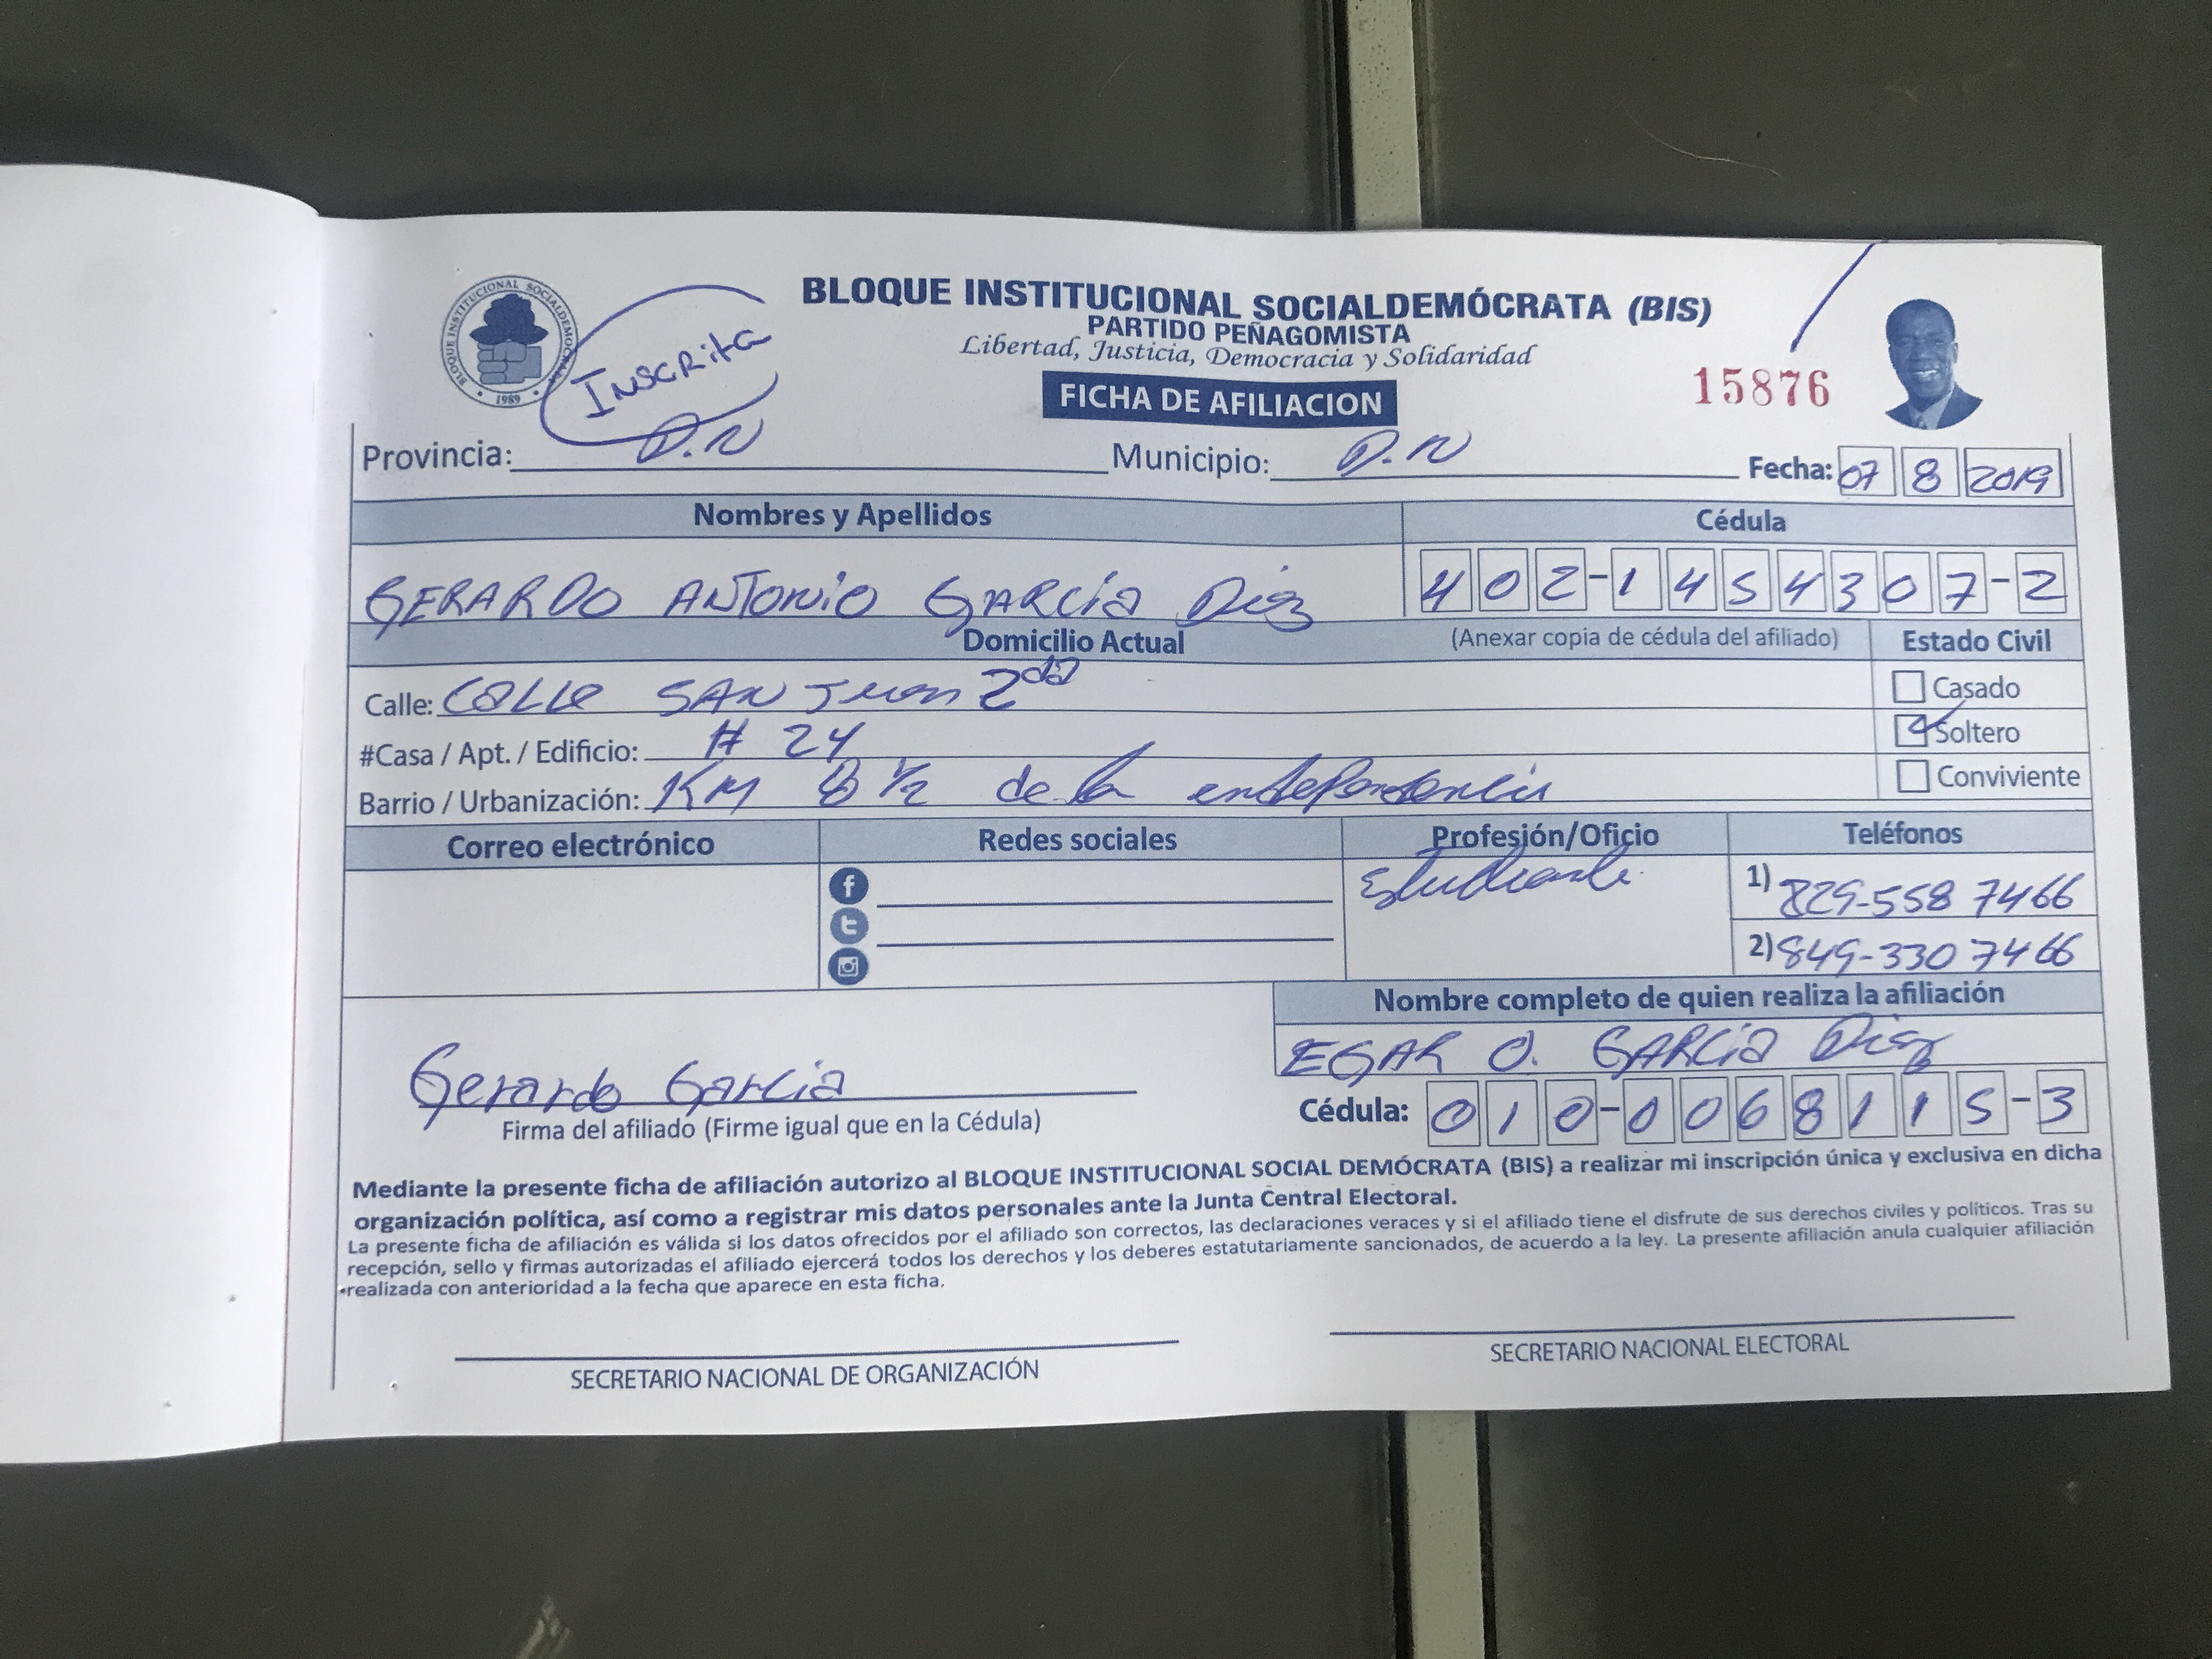 BLOQUE INSTITUCIONAL SOCIALDEMÓCRATA
1989
Inscrita
BLOQUE INSTITUCIONAL SOCIALDEMÓCRATA (BIS)
PARTIDO PEÑAGOMISTA
Libertad, Justicia, Democracia y Solidaridad
FICHA DE AFILIACION
15876
Provincia: D.N Municipio: D.N Fecha: 07 8 2019
Nombres y Apellidos Cédula
GERARDO ANTONIO GARCÍA Diaz 402-1454307-2
Domicilio Actual (Anexar copia de cédula del afiliado) Estado Civil
Calle: CALLE SAN Juan 2da Casado
#Casa / Apt. / Edificio: # 24 Soltero
Barrio / Urbanización: KM 8 1/2 de la endependencia Conviviente
Correo electrónico Redes sociales Profesión/Oficio Teléfonos
Estudiante 1) 829-558 7466
2) 849-330 7466
Nombre completo de quien realiza la afiliación
EGAR O. GARCIA Diaz
Gerardo Garcia
Cédula: 010-0068115-3
Firma del afiliado (Firme igual que en la Cédula)
Mediante la presente ficha de afiliación autorizo al BLOQUE INSTITUCIONAL SOCIAL DEMÓCRATA (BIS) a realizar mi inscripción única y exclusiva en dicha
organización política, así como a registrar mis datos personales ante la Junta Central Electoral.
La presente ficha de afiliación es válida si los datos ofrecidos por el afiliado son correctos, las declaraciones veraces y si el afiliado tiene el disfrute de sus derechos civiles y políticos. Tras su
recepción, sello y firmas autorizadas el afiliado ejercerá todos los derechos y los deberes estatutariamente sancionados, de acuerdo a la ley. La presente afiliación anula cualquier afiliación
realizada con anterioridad a la fecha que aparece en esta ficha.
SECRETARIO NACIONAL DE ORGANIZACIÓN SECRETARIO NACIONAL ELECTORAL